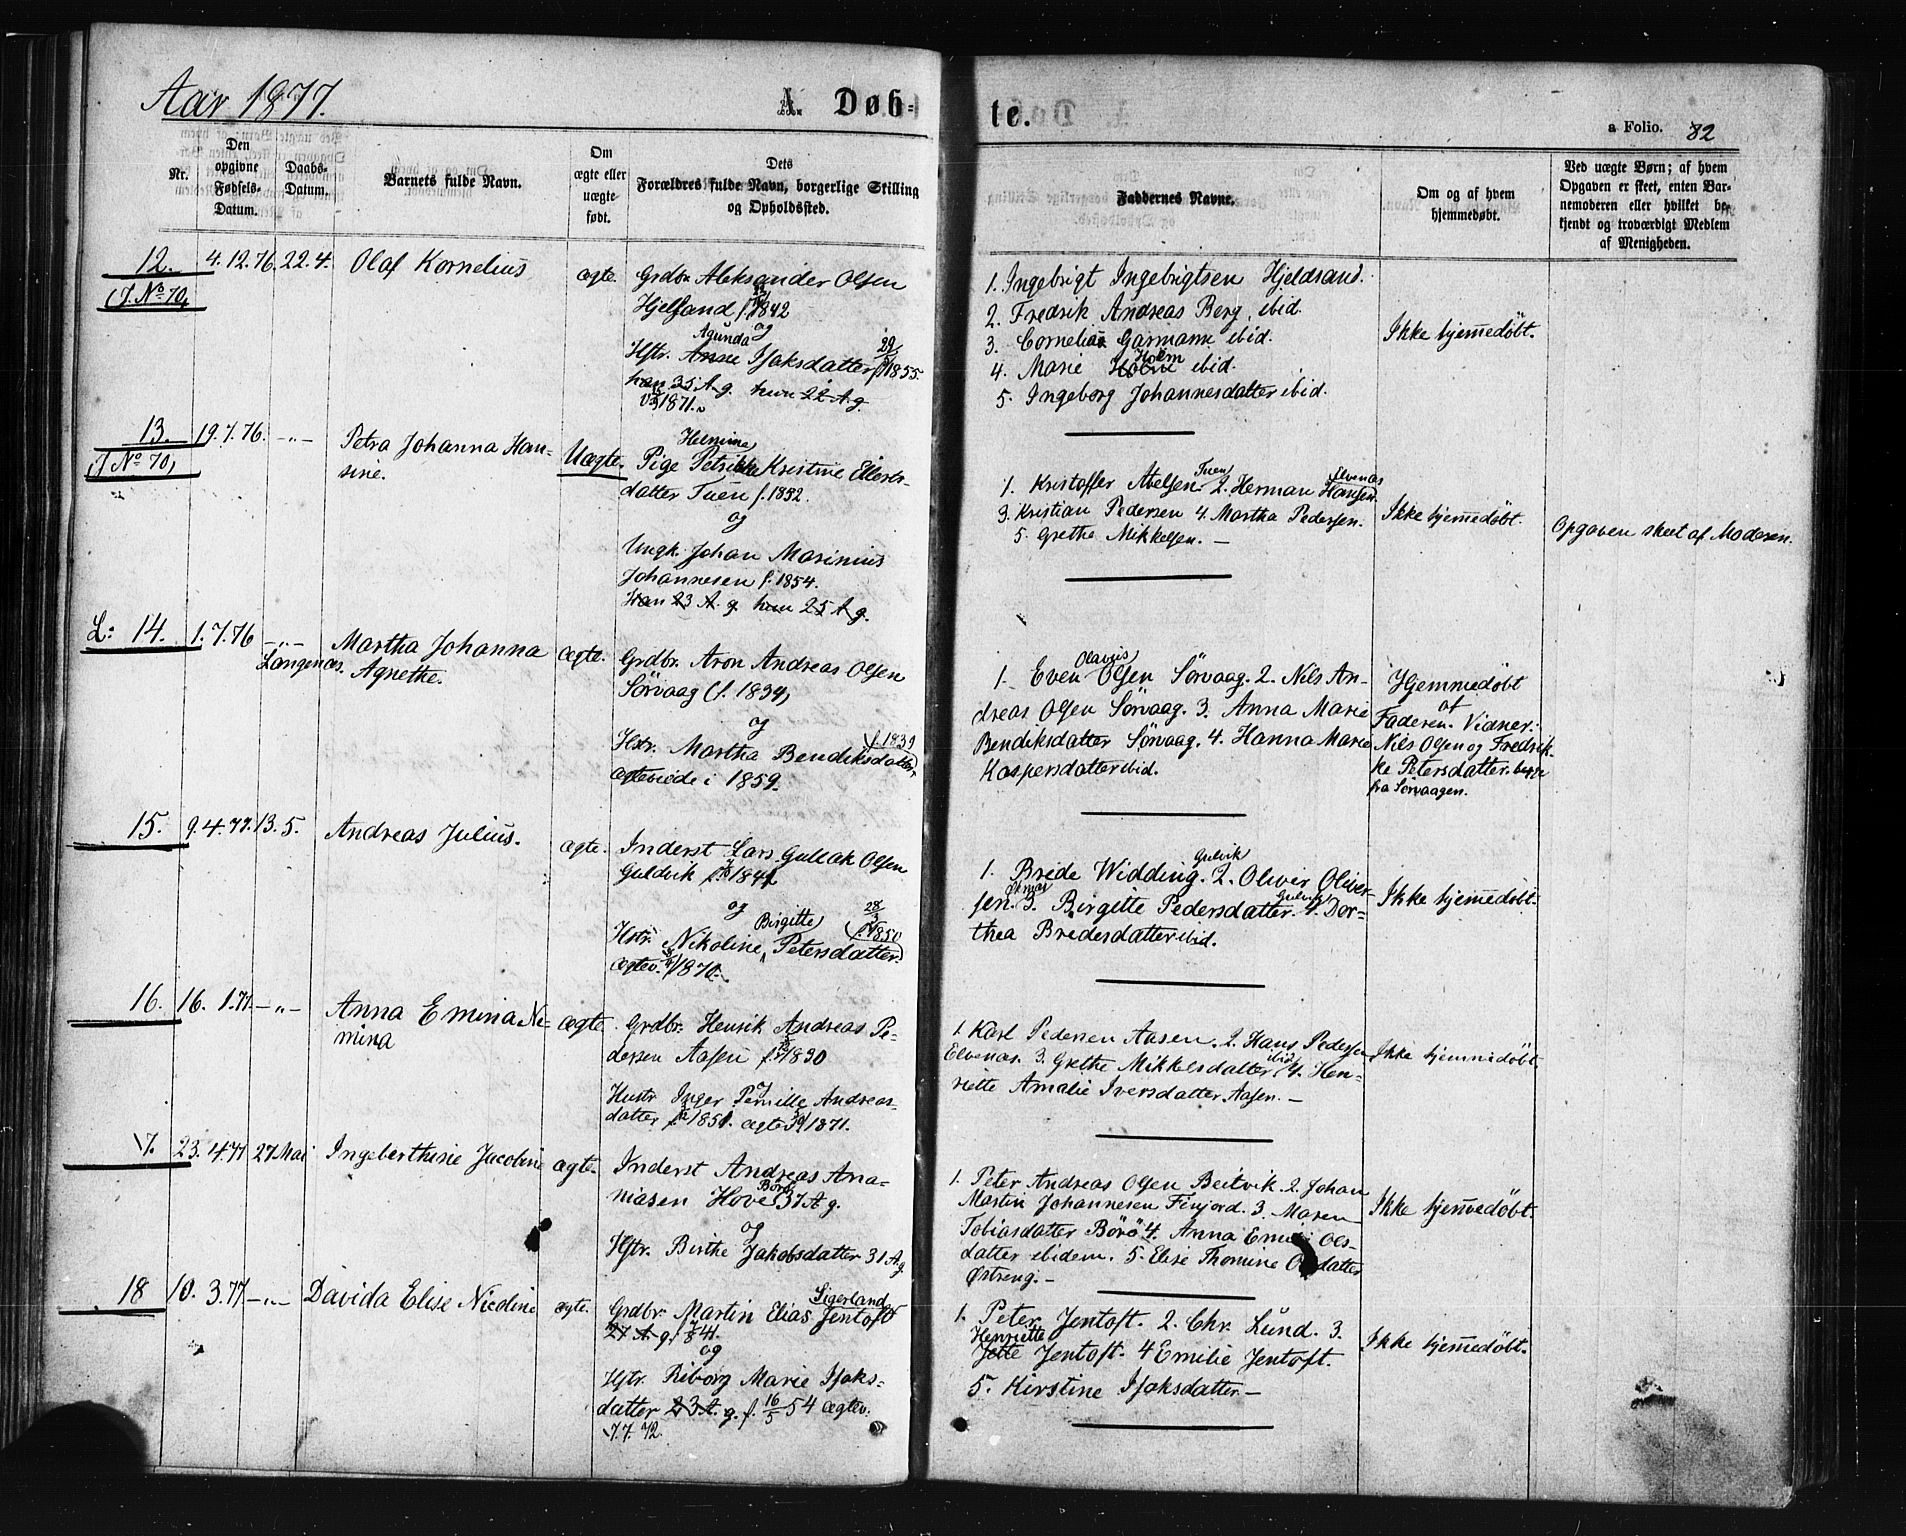 Aar 1877.
A. Døb-
te.
a Folio. 82
Nr.
Den opgivne Fødsels-Datum.
Daabs-Datum.
Barnets fulde Navn.
Om ægte eller uægte født.
Dets Forældres fulde Navn, borgerlige Stilling og Opholdssted.
Faddernes Navne.
Om og af hvem hjemmedøbt.
Ved uægte Børn; af hvem Opgaven er skeet, enten Barnemoderen eller hvilket bekjendt og troværdigt Medlem af Menigheden.
12. 4.12.76. 22.4. Olaf Kornelius ægte. Grdbr. Aleksander Olsen
(J. No 70)
Hjelsand f. 1842
og
Agunda
Hstr. Anne Isaksdatter f. 29 1855.
han 35 A g. hun 22 A g.
1871.
1. Ingebrigt Ingebrigtsen Hjeldsand.
2. Fredrik Andreas Berg, ibid.
3. Cornelius Garmann ibid.
Holm
4. Marie ibid.
5. Ingeborg Johannesdatter ibid.
Ikke hjemedøbt.
13. 19.7.76. -"- Petra Johanna Han-
sine.
(J No 70)
Uægte.
Helmine
Pige Petrikke Kristine Ellerts-
datter Tuen f. 1852.
og
Ungk. Johan Marinius
Johannesen f. 1854.
Han 23 A. g. hun 25 A g.
Tuen Elvenæs
1. Kristoffer Abelsen. 2. Herman Hansen.
3. Kristian Pedersen 4. Martha Pedersen.
5. Grethe Mikkelsen. —
Ikke hjemedøbt.
Opgaven skeet af Moderen.
L: 14. 1.7.76 -"- Martha Johanna
Langenæs. Agnethe.
ægte. Grdbr. Aron Andreas Olsen
Sörvaag (f. 1834)
og
f. 1839
Hstr. Martha Bendiksdatter
ægteviede i 1859.
Olavus
1. Even Olsen Sörvaag. 2. Nils An-
dreas Olsen Sörvaag. 3. Anna Marie
Bendiksdatter Sörvaag. 4. Hanna Marie
Kaspersdatter ibid.
Hjemmedøbt
af
Faderen. Vidner:
Nils Olsen og Fredrik-
ke Petersdatter. begge
fra Sörvaagen.
15. 9.4.77. 13.5. Andreas Julius. ægte. Inderst Lars Gullak Olsen
Guldvik 1841
og
Birgitte 28/3 1850
Hstr. Nikoline Petersdatter.
ægtev. 1870.
Gulvik
1. Brede Widding. 2. Oliver Oliver-
sen. 3. Birgitte Pedersdatter. 4. Dor-
thea Bredesdatter ibid.
Ikke hjemedøbt.
16. 16. 1.77. -"- Anna Emina Ne-
mina
ægte. Grdbr. Henrik Andreas Pe-
dersen Aasen 1830
Hustr. Inger Pernille Andreas-
datter 1851. ægtev 1871.
1. Karl Pedersen Aasen. 2. Hans Pedersen
Elvenæs. 3. Grethe Mikkelsdatter ibid 4. Hen-
riette Amalie Iversdatter Aasen. —
Ikke hjemmedøbt.
17. 23.4.77 27 Mai Ingeberthine Jacobine ægte. Inderst Andreas Ana-
niasen Hove 37 A g.
og
Hstr. Birthe Jakobsdatter 31 A g.
1. Peter Andreas Olsen Beitvik. 2. Johan
Martin Johannesen Finjord. 3. Maren
Tobiasdatter Börö 4. Anna Ols-
datter ibidem. 5. Elise Thomine
Østreng. —
Ikke hjemmedøbt.
18 10. 3.77. -"- Davida Elise Nicoline ægte.
Sigerland
Grdbr. Martin Elias Jentoft
27 A g. 41.
og
Hstr. Riborg Marie Isaks-
datter 23 A. g. f. 16/5 54 ægtev.
7.7. 72.
1. Peter Jentoft. 2. Chr. Lund. 3.
Henriette
Jette Jentoft. 4 Emilie Jentoft.
5. Kirstine Isaksdatter —
Ikke hjemedøbt.